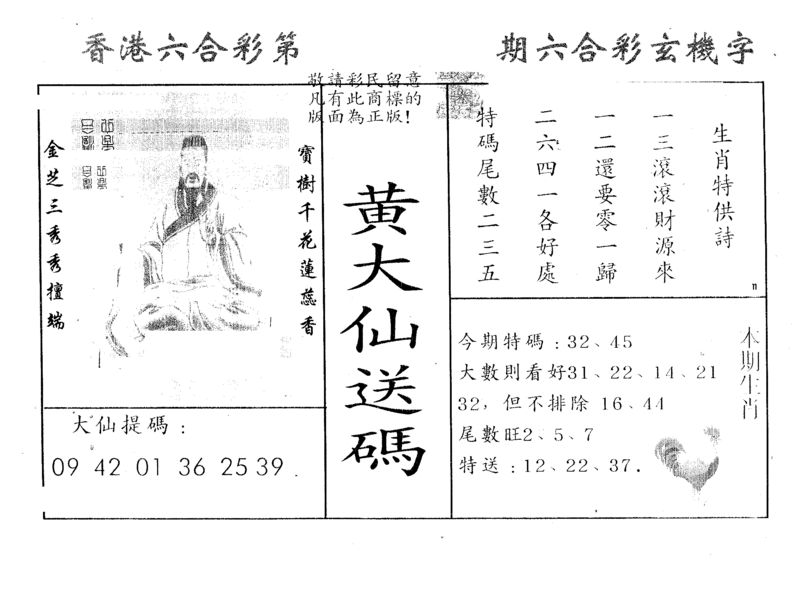 香港六合彩第
期六合彩玄機字
敬請彩民留意
凡有此商標的
版面為正版!
金芝三秀秀擅端
寶樹千花蓮蕊香
黃大仙送碼
大仙提碼：
09 42 01 36 25 39
生肖特供詩
一三滾滾財源來
一二還要零一歸
二六四一各好處
特碼尾數二三五
今期特碼：32、45
大數則看好31、22、14、21
32，但不排除 16、44
尾數旺2、5、7
特送：12、22、37．
本期生肖